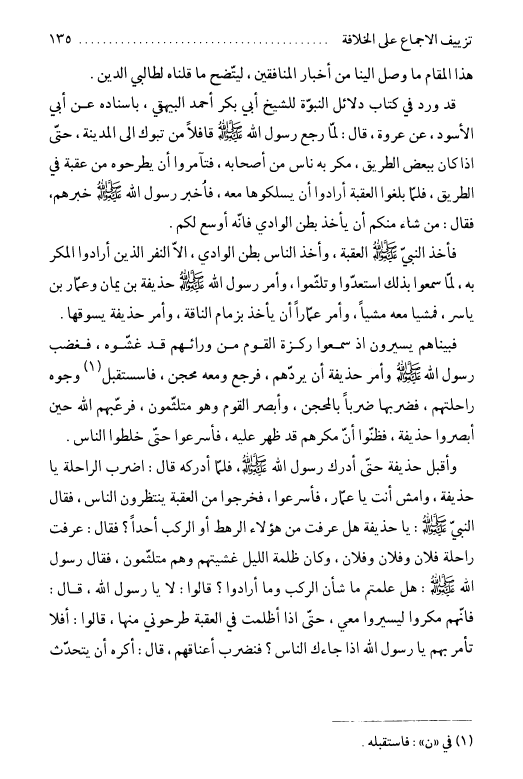 تزييف الاجماع على الخلافة ........................................ ١٣٥
هذا المقام ما وصل الينا من أخبار المنافقين ، ليتّضح ما قلناه لطالبي الدين .
قد ورد في كتاب دلائل النبوّة للشيخ أبي بكر أحمد البيهقي ، باسناده عـن أبي
الأسود ، عن عروة ، قال : لمّا رجع رسول الله ﷺ قافلاً من تبوك الى المدينة ، حتّى
اذا كان ببعض الطريق ، مكر به ناس من أصحابه ، فتآمروا أن يطرحوه من عقبة في
الطريق ، فلمّا بلغوا العقبة أرادوا أن يسلكوها معه ، فأُخبر رسول الله ﷺ خبرهم،
فقال : من شاء منكم أن يأخذ بطن الوادي فانّه أوسع لكم .
فأخذ النبيّ ﷺ العقبة ، وأخذ الناس بطن الوادي ، الاّ النفر الذين أرادوا المكر
به ، لمّا سمعوا بذلك استعدّوا وتلثّموا ، وأمر رسول الله ﷺ حذيفة بن يمان وعمّار بن
ياسر ، فمشيا معه مشياً ، وأمر عمّاراً أن يأخذ بزمام الناقة ، وأمر حذيفة يسوقها .
فبيناهم يسيرون اذ سمـعوا ركـزة القوم مـن ورائـهم قـد غشّـوه ، فـغضب
رسول الله ﷺ وأمر حذيفة أن يردّهم ، فرجع ومعه محجن ، فاسستقبل(١) وجوه
راحلتهم ، فضربها ضرباً بالمحجن ، وأبصر القوم وهو متلثّمون ، فرعّبهم الله حين
أبصروا حذيفة ، فظنّوا أنّ مكرهم قد ظهر عليه ، فأسرعوا حتّى خلطوا الناس .
وأقبل حذيفة حتّى أدرك رسول الله ﷺ، فلمّا أدركه قال : اضرب الراحلة يا
حذيفة ، وامش أنت يا عمّار ، فأسرعوا ، فخرجوا من العقبة ينتظرون الناس ، فقال
النبيّ ﷺ : يا حذيفة هل عرفت من هؤلاء الرهط أو الركب أحداً ؟ فقال : عرفت
راحلة فلان وفلان وفلان ، وكان ظلمة الليل غشيتهم وهم متلثّمون ، فقال رسول
الله ﷺ : هل علمتم ما شأن الركب وما أرادوا ؟ قالوا : لا يا رسول الله ، قـال :
فانّهم مكروا ليسيروا معي ، حتّى اذا أظلمت في العقبة طرحوني منها ، قالوا : أفلا
تأمر بهم يا رسول الله اذا جاءك الناس ؟ فنضرب أعناقهم ، قال : أكره أن يتحدّث
(١) في «ن» : فاستقبله .